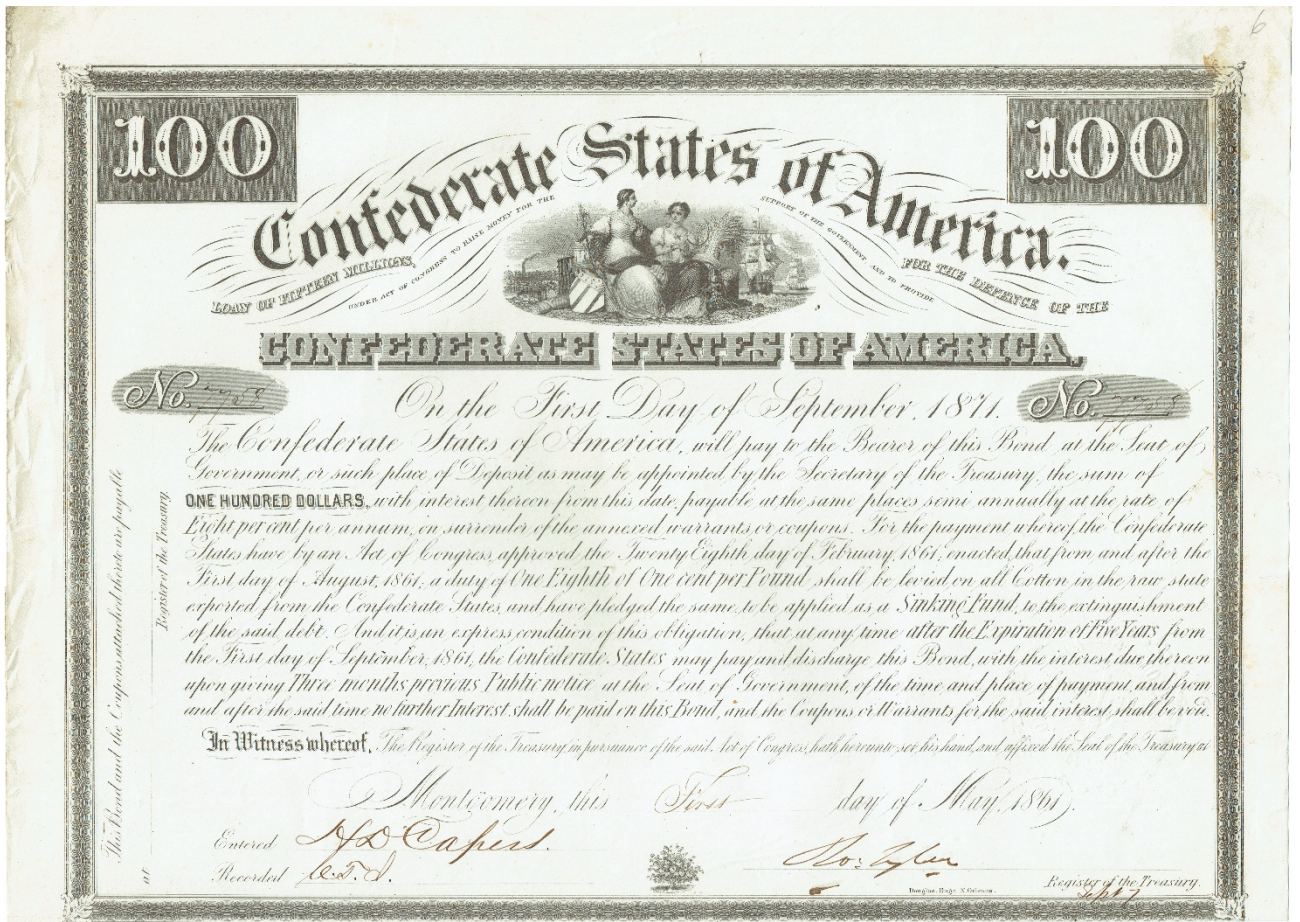 6
100
100
Confederate States of America.
LOAN OF FIFTEEN MILLIONS,
UNDER ACT OF CONGRESS TO RAISE MONEY FOR THE
SUPPORT OF THE GOVERNMENT AND TO PROVIDE
FOR THE DEFENCE OF THE
CONFEDERATE STATES OF AMERICA.
No.
No.
On the First Day of September, 1871.
The Confederate States of America, will pay to the Bearer of this Bond at the Seat of
Government, or such place of Deposit as may be appointed by the Secretary of the Treasury, the sum of
ONE HUNDRED DOLLARS, with interest thereon from this date, payable at the same places semi annually at the rate of
Eight per cent per annum, on surrender of the annexed warrants or coupons. For the payment whereof, the Confederate
States have by an Act of Congress, approved the Twenty Eighth day of February, 1861, enacted, that from and after the
First day of August, 1861, a duty of One Eighth of One cent per Pound shall be levied on all Cotton in the raw state
exported from the Confederate States, and have pledged the same to be applied as a Sinking Fund, to the extinguishment
of the said debt. And it is an express condition of this obligation, that at any time after the Expiration of Five Years from
the First day of September, 1861, the Confederate States may pay and discharge this Bond, with the interest due thereon
upon giving Three months previous Public notice at the Seat of Government, of the time and place of payment, and from
and after the said time no further Interest shall be paid on this Bond, and the Coupons or Warrants for the said interest shall be void.
In Witness whereof, The Register of the Treasury, in pursuance of the said Act of Congress, hath hereunto set his hand, and affixed the Seal of the Treasury at
Montgomery, this First day of May, 1861.
Entered H D Capers.
Recorded
Ro: Tyler
Register of the Treasury.
Douglas, Engr. N. Orleans.
Sept 7
This Bond and the Coupons attached hereto are payable
at
Register of the Treasury